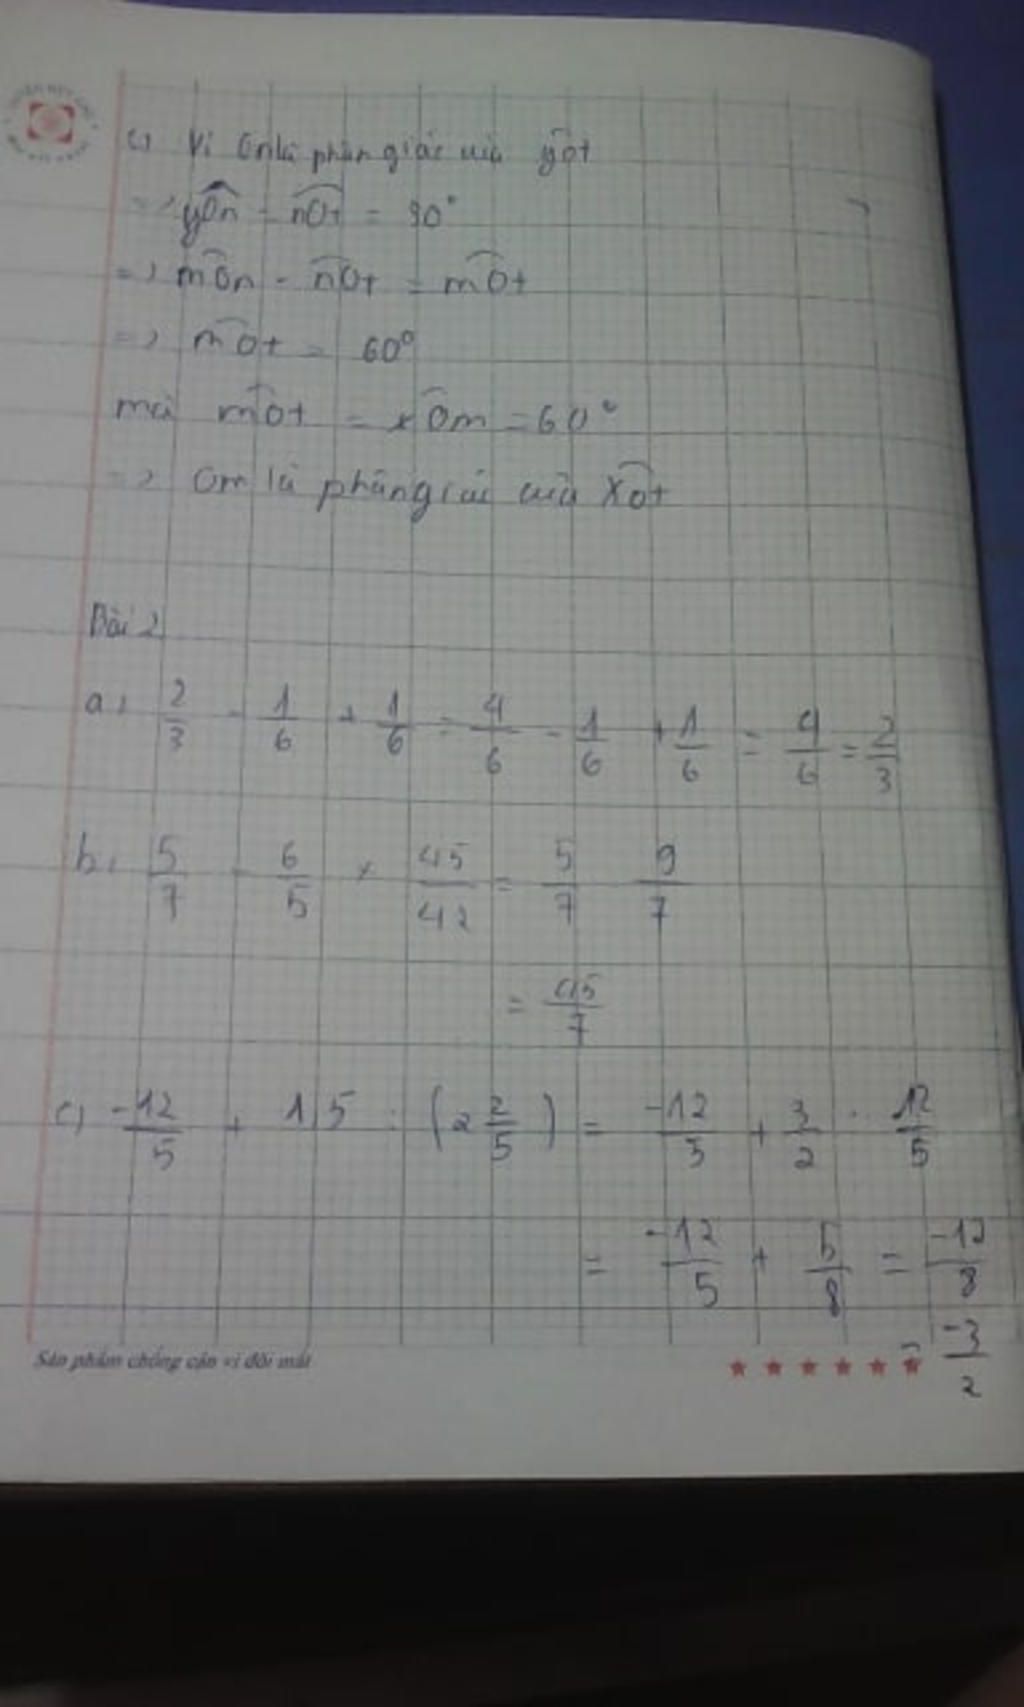 c) Vì On là phân giác của yOt
=> yOn = nOt = 30°
=> mOn - nOt = mOt
=> mOt = 60°
mà mOt = xOm = 60°
=> Om là phân giác của xOt
Bài 2
a, 2/3 - 1/6 + 1/6 = 4/6 - 1/6 + 1/6 = 4/6 = 2/3
b, 5/7 - 6/5 × 45/42 = 5/7 9/7
= 45/7
c) -12/5 + 1,5 : (2 2/5) = -12/5 + 3/2 . 12/5
= -12/5 + 5/8 = -12/8
= -3/2
Sản phẩm chống cận vì đôi mắt